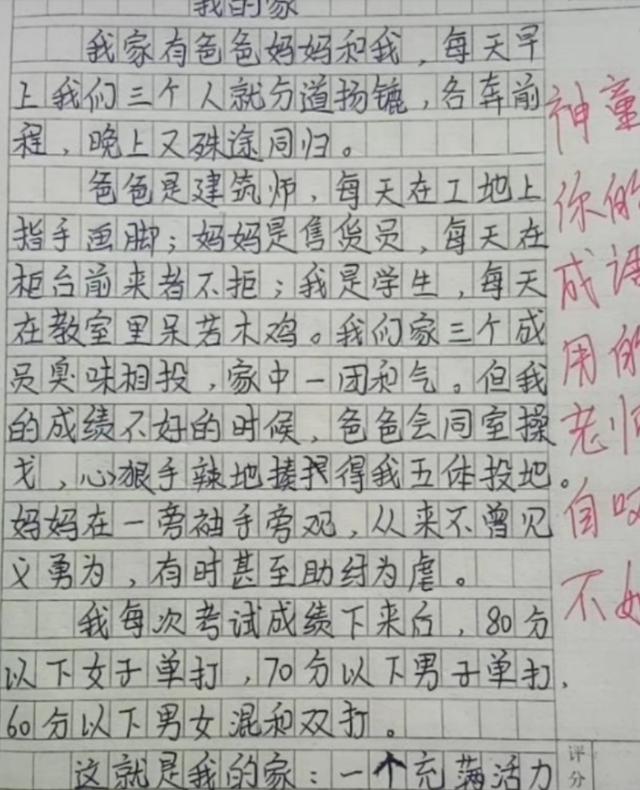 我的家
我家有爸爸妈妈和我，每天早
上我们三个人就分道扬镳，各奔前
程，晚上又殊途同归。
爸爸是建筑师，每天在工地上
指手画脚；妈妈是售货员，每天在
柜台前来者不拒；我是学生，每天
在教室里呆若木鸡。我们家三个成
员臭味相投，家中一团和气。但我
的成绩不好的时候，爸爸会同室操
戈，心狠手辣地揍得我五体投地。
妈妈在一旁袖手旁观，从来不曾见
义勇为，有时甚至助纣为虐。
我每次考试成绩下来后，80分
以下女子单打，70分以下男子单打，
60分以下男女混和双打。
这就是我的家：一个充满活力
神童
你的
成语
用的
老师
自叹
不如
评
分